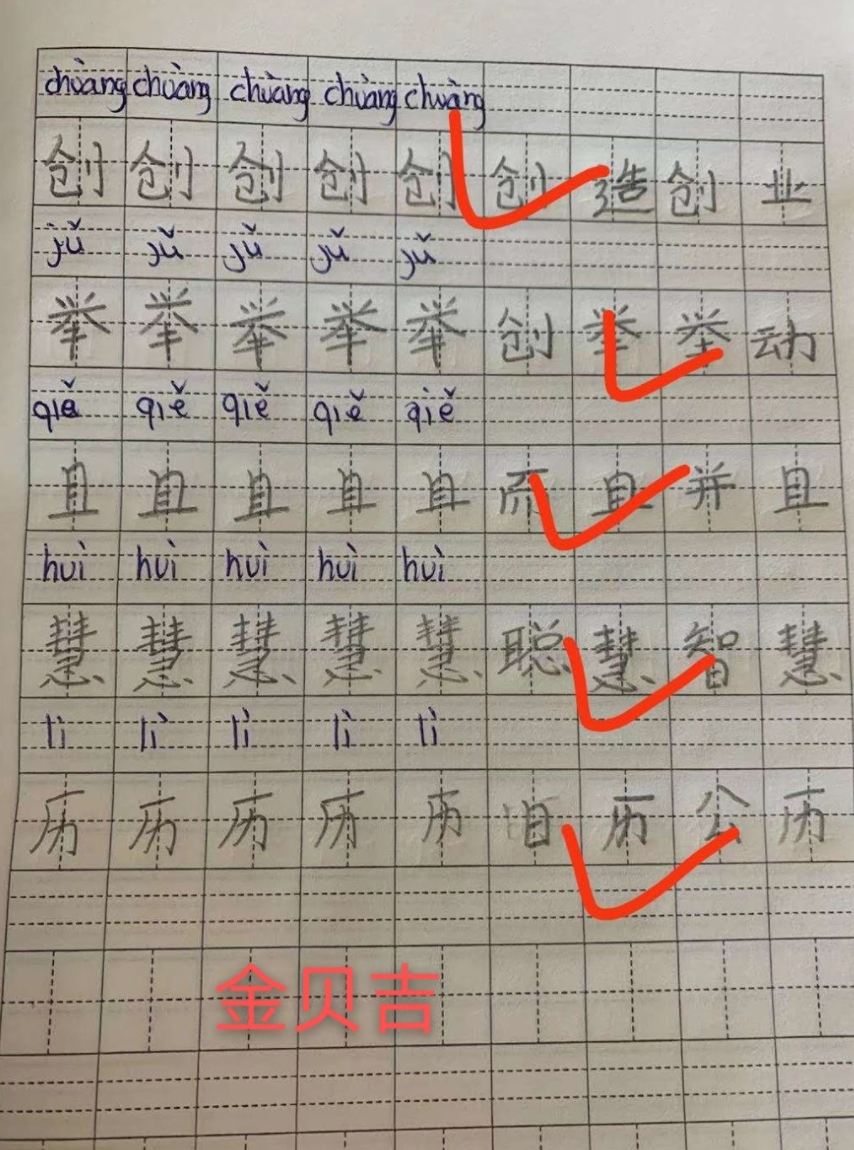 chuàng chuàng chuàng chuàng chuàng
创 创 创 创 创 创 造 创 业
jǔ jǔ jǔ jǔ jǔ
举 举 举 举 举 创 举 举 动
qiě qiě qiě qiě qiě
且 且 且 且 且 而 且 并 且
huì huì huì huì huì
慧 慧 慧 慧 慧 聪 慧 智 慧
lì lì lì lì lì
历 历 历 历 历 日 历 公 历
金贝吉